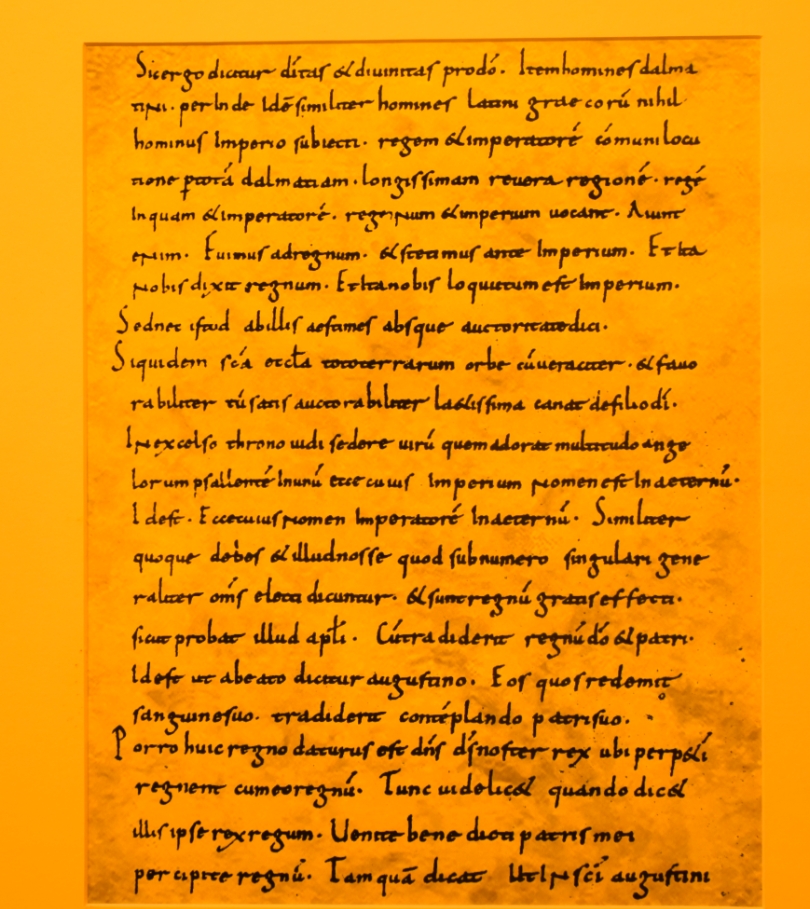 Sicergo dicitur dītas & diuinitas prodō. Itemhomines dalma
tini. perInde Idē similiter homines latini grae corū nihil
hominus Imperio subiecti. regem &imperatorē cōmuni locu
tione ptotā dalmatiam. longissimam reuera regionē. regē
Inquam &imperatorē. regeNum &imperium uocant. Aiunt
eNim. Fuimus adregnum. &stetimus ante Imperium. Et Ita
Nobis dixit regnum. EtItanobis loquutum est Imperium.
Sednec istud abillis aestimes absque auctoritatedici.
Siquidem scā eccla tototerrarum orbe cūueraciter. &fauo
rabiliter tū satis auctorabiliter la&issima canat defiliodī.
INexcelso throno uidi sedere uirū quem adorat multitudo ange
lorum psallentē Inunū ecce cuius Imperium NomenestInaeternū.
Idest. EccecuiusNomen Imperatorē Inaeternū. Similiter
quoque debes &illudnosse quod subnumero singulari gene
raliter om̄s electi dicuntur. &suntregnū gratiseffecti.
sicut probat illud apłi. Cūtradiderit regnū dō &patri.
Idest ut abeato dicitur augustino. Eos quosredemit
sanguinesuo. tradiderit contēplando patrisuo.
Porro huic regno daturus est dn̄s ds̄noster rex ubi perp&i
regnent cumeoregnū. Tunc uidelic& quando dic&
illis ipse rexregum. Uenite bene dicti patris mei
percipite regnū. Tam quā dicat UtINscī augustini